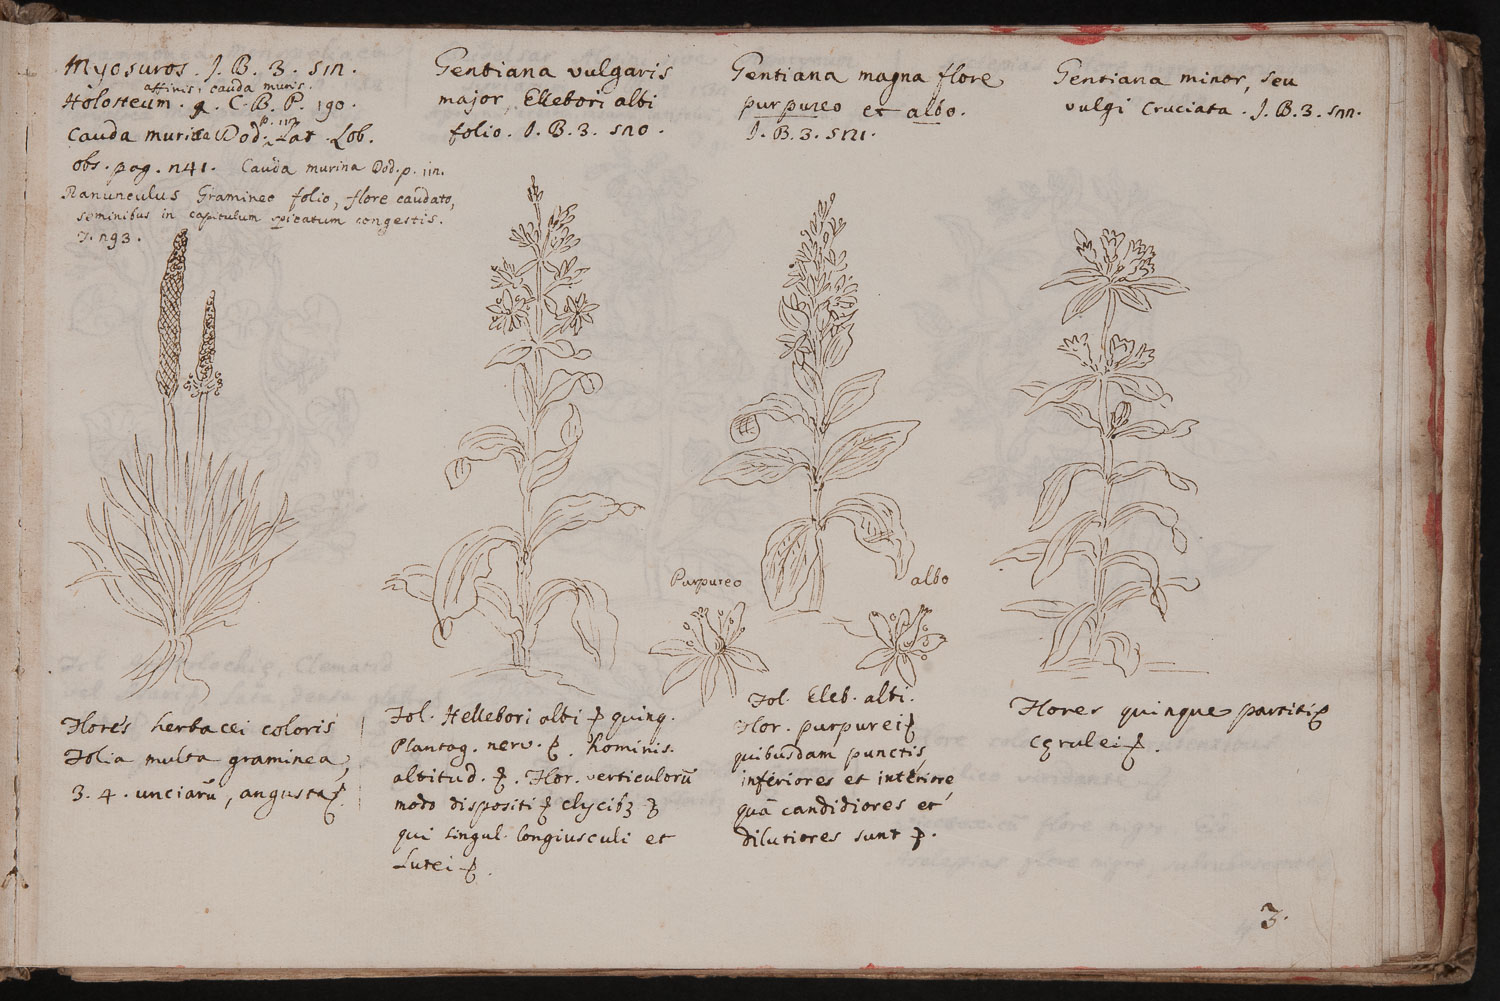 Myosuros. J. B. 3. 512.
affinis, cauda muris.
Holosteum. C. B. P. 190.
p. 112
Cauda murina Dod. Lat. Lob.
obs. pag. 241. Cauda murina Dod. p. 112.
Ranunculus Gramineo folio, flore caudato,
seminibus in capitulum spicatum congestis.
T. 293.
Gentiana vulgaris
major, Ellebori albi
folio. J. B. 3. 520.
Gentiana magna flore
purpureo et albo.
J. B. 3. 521.
Gentiana minor, seu
vulgi Cruciata. J. B. 3. 522.
Purpureo
albo
Flores herbacei coloris
Folia multa graminea,
3. 4. unciarū, angusta
Fol. Hellebori albi quinq.
Plantag. nerv. hominis
altitud. Flor. verticulorū
modo dispositi clycibꝫ
qui singul. longiusculi et
Lutei
Fol. Eleb. albi.
Flor. purpurei
quibusdam punctis,
inferiores et interiore
quā candidiores et
dilutiores sunt
Flores quinque partiti
cęrulei
3.